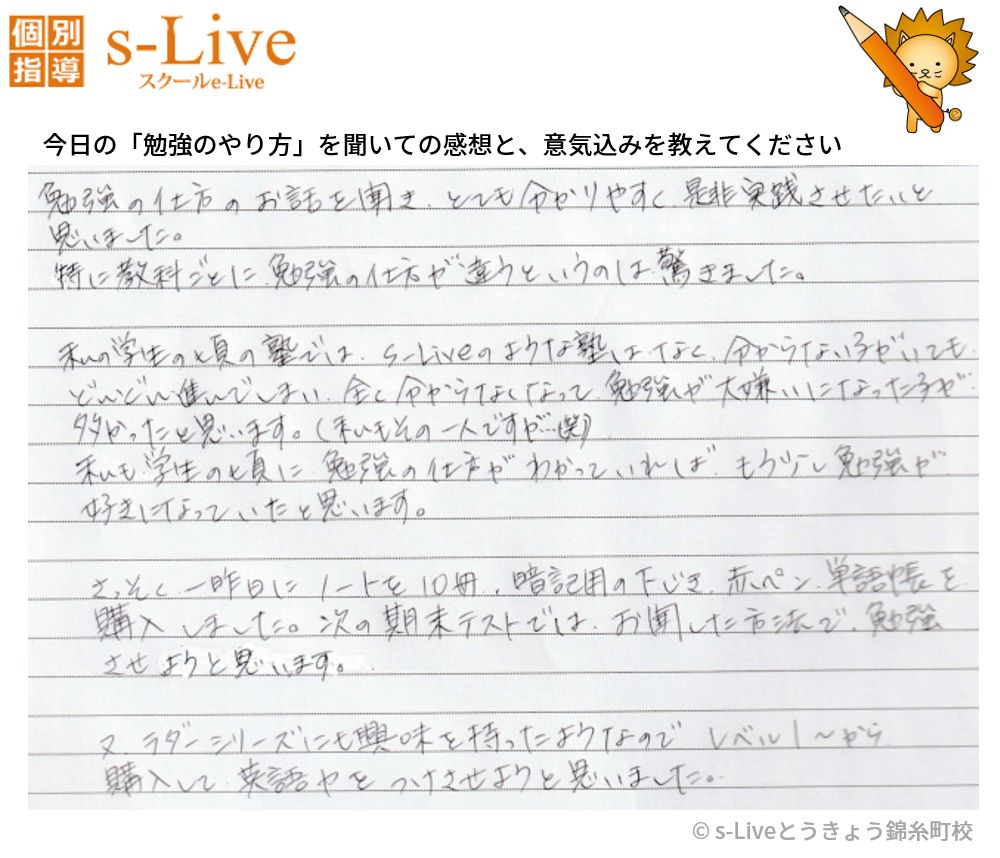 個別
指導
s-Live
スクールe-Live
今日の「勉強のやり方」を聞いての感想と、意気込みを教えてください
勉強の仕方のお話を聞き、とても分かりやすく、是非実践させたいと
思いました。
特に教科ごとに、勉強の仕方が違うというのは、驚きました。
私の学生の頃の塾では、s-Liveのような塾はなく、分からない子がいても、
どんどん進んでしまい、全く分からなくなって、勉強が大嫌いになった子が
多かったと思います。(私もその一人ですが…(笑))
私も学生の頃に、勉強の仕方がわかっていれば、もう少し勉強が
好きになっていたと思います。
さっそく、一昨日にノートを10冊、暗記用の下じき、赤ペン、単語帳を
購入しました。次の期末テストでは、お聞した方法で、勉強
させようと思います。
又、ラダーシリーズにも興味を持ったようなので レベル1~から
購入して、英語やを つけさせようと思いました。
© s-Liveとうきょう錦糸町校